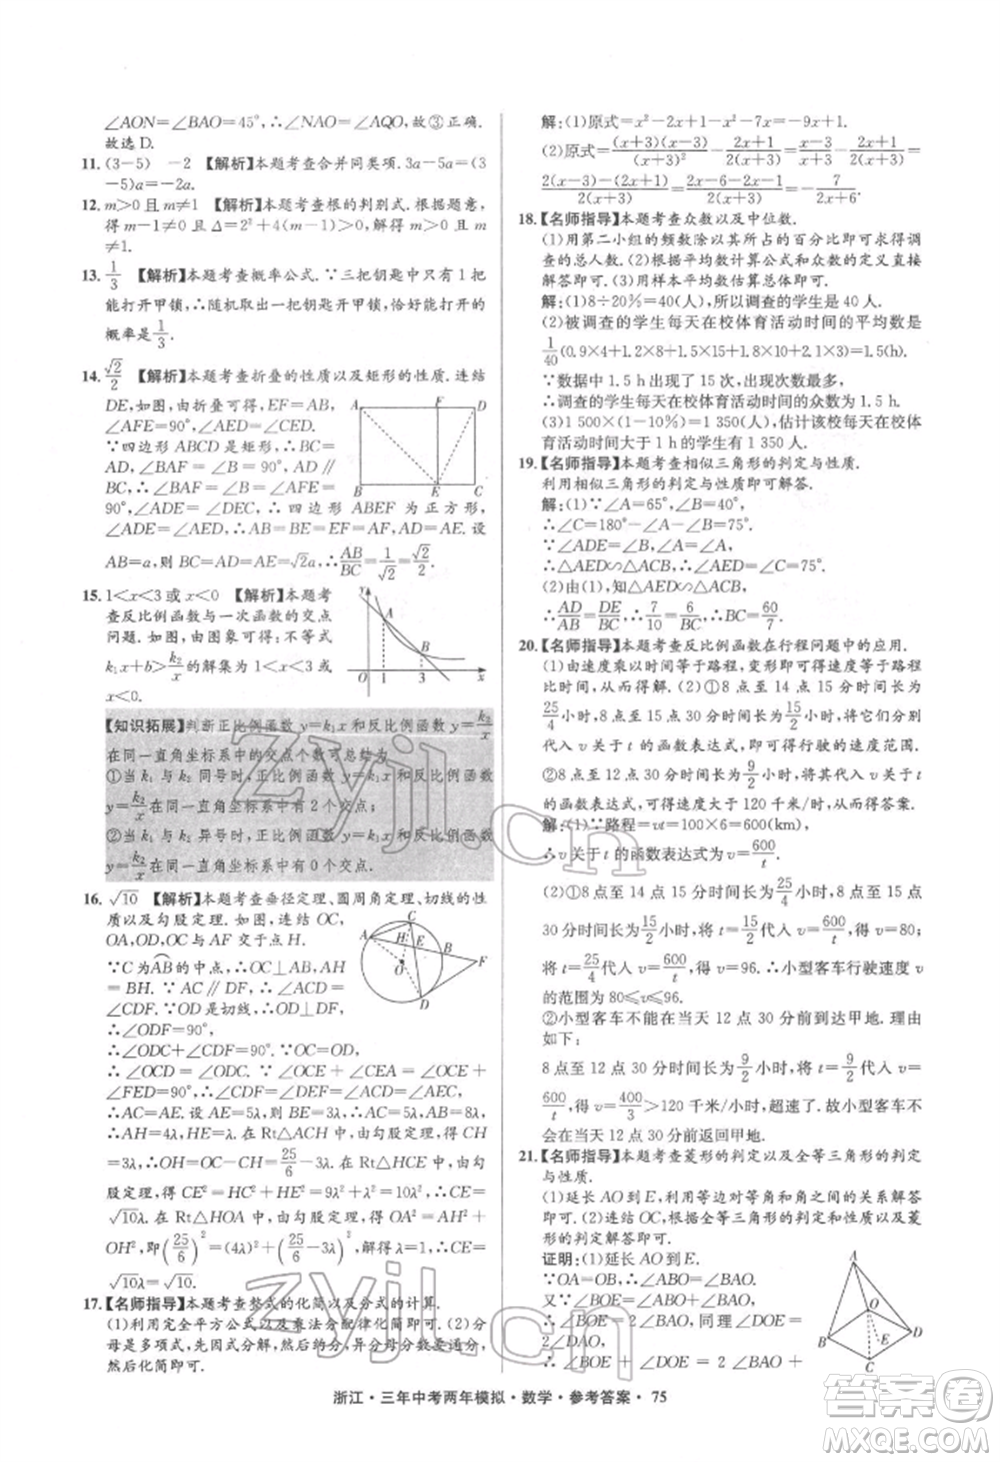 ∠AON=∠BAO=45°,∴∠NAO=∠AQO,故③正确.
故选D.
11. (3-5) -2 【解析】本题考查合并同类项.3a-5a=(3
-5)a=-2a.
12. m>0且m≠1 【解析】本题考查根的判别式.根据题意,
得m-1≠0且Δ=2²+4(m-1)>0,解得m>0且m
≠1.
13. 1/3 【解析】本题考查概率公式.∵三把钥匙中只有1把
能打开甲锁,∴随机取出一把钥匙,恰好能打开甲锁的
概率是1/3.
14. √2/2 【解析】本题考查折叠的性质以及矩形的性质.连结
DE,如图,由折叠可得,EF=AB,
∠AFE=90°,∠AED=∠CED.
∵四边形ABCD是矩形,∴
AD=BC,∠BAF=∠B=90°,AD∥
BC.∴四边形ABEF是矩形,∠C=
90°,∠ADE=∠DEC,∴四边形ABEF为正方形,
∠ADE=∠AED,∴AB=BE=EF=AF,AD=AE.设
AB=a,则BC=AD=AE=√2a,∴AB/BC=1/√2=√2/2.
15. 1<x<3或x<0 【解析】本题考
查反比例函数与一次函数的交点
问题.如图,由图象可得:不等式
k₁x+b>k₂/x的解集为1<x<3或
x<0.
y
A
B
O 1 3 x
【知识拓展】判断正比例函数y=k₁x和反比例函数y=k₂/x
在同一直角坐标系中的交点个数可总结为:
①当k₁与k₂同号时,正比例函数y=k₁x和反比例函数
y=k₂/x在同一直角坐标系中有2个交点;
②当k₁与k₂异号时,正比例函数y=k₁x和反比例函数
y=k₂/x在同一直角坐标系中有0个交点.
16. √10 【解析】本题考查垂径定理、圆周角定理、切线的性
质以及勾股定理.如图,连结OC,
OA,OD与AF交于点H.
∵C为AB的中点,∴OC⊥AB,AH=
BH.∵AC∥DF,∴∠CAE=
∠F.∵OD是切线,∴OD⊥DF,
∴∠ODF=90°,
∴∠ODC+∠CDF=90°.∵OC=OD,
∴∠OCD=∠ODC,∵∠OCE+∠CEA=90°,
∴∠FED=∠CDF,∴∠ACD=∠AEC,
∴AC=AE=5λ,则BE=3λ,∴AB=8λ,
∴AH=4λ.在Rt△ACH中,由勾股定理,得CH=3λ,
∴OH=25/6λ-3λ.在Rt△HCE中,由勾
股定理,得CE²=HC²+HE²,∴CE=
√10λ.在Rt△HOA中,由勾股定理,得OA²=AH²+
OH²,即(25/6)²=(4λ)²+(25/6-3λ)²,解得λ=1,∴CE=
√10λ=√10.
17. 【名师指导】本题考查整式的化简以及分式的计算.
(1)利用完全平方公式以及乘法分配律化简即可.(2)分
母是多项式,先因式分解,然后约分,再根据异分母通分,
然后化简即可.
解:(1)原式=x²-2x+1-x²-7x=-9x+1.
(2)原式=(x+3)(x-3)/(x+3)²-(2x+1)/2(x+3)=(x-3)/(x+3)-(2x+1)/2(x+3)=
[2(x-3)-(2x+1)]/2(x+3)=(2x-6-2x-1)/2(x+3)=-7/(2x+6).
18. 【名师指导】本题考查众数以及中位数.
(1)用第二小组的频数除以其所占的百分比即可求得
的总人数.(2)根据平均数计算公式和众数的定义直接
解答即可.(3)用样本平均数估算总体即可.
解:(1)8÷20%=40(人),所以调查的学生是40人.
(2)被调查的学生每天在校体育活动时间的平均数是
1/40(0.9×4+1.2×8+1.5×15+1.8×10+2.1×3)=1.5(h).
∵数据中1.5 h出现了15次,出现次数最多,
∴调查的学生每天在校体育活动时间的众数为1.5 h.
(3)1500×(1-10%)=1350(人),估计该校每天在校体
育活动时间大于1 h的学生有1 350人.
19. 【名师指导】本题考查相似三角形的判定与性质.
利用相似三角形的判定与性质即可解答.
解:(1)∵∠A=65°,∠B=40°,
∴∠C=180°-∠A-∠B=75°.
∵∠ADE=∠B,∠A=∠A,
∴△AED∽△ACB,∴∠AED=∠C=75°.
(2)由(1),知△AED∽△ACB,
∴AD/AB=DE/BC,∴7/10=6/BC,∴BC=60/7.
20. 【名师指导】本题考查反比例函数在行程问题中的应用.
(1)由速度乘以时间等于路程,变形即可得速度等于路程
比时间,从而得解.(2)①8点至12点48分时间长为
25/4小时,8点至14点时间长为15/2小时,将它们分别代
入v关于t的函数表达式,即可得小型客车行驶的速度范围.
②8点至12点30分时间长为9/2小时,将其代入v关于t
的函数表达式,可得速度大于120千米/时,从而得出答案.
解:(1)∵路程=vt=100×6=600(km),
∴v关于t的函数表达式为v=600/t.
(2)①8点至14点15分时间长为25/4小时,8点至15点
30分时间长为15/2小时,将t=15/2代入v=600/t,得v=80;
将t=25/4代入v=600/t,得v=96.∴小型客车行驶速度v
的范围为80≤v≤96.
②小型客车不能在当天12点30分前到达甲地.理由
如下:
8点至12点30分时间长为9/2小时,将t=9/2代入v=
600/t,得v=400/3>120千米/时,超速了.故小型客车不能
在当天12点30分前返回甲地.
21. 【名师指导】本题考查菱形的判定以及全等三角形的判定
与性质.
(1)延长AO到E,利用等边对等角和角之间的关系解答即
可.(2)连结OC,根据全等三角形的判定和性质以及菱
形的判定解答即可.
证明:(1)延长AO到E.
∵OA=OB,∴∠ABO=∠BAO.
又∵∠BOE=∠ABO+∠BAO,
∴∠BOE=2∠BAO,同理∠DOE=
2∠DAO,
∴∠BOE+∠DOE=2∠BAO+
浙江·三年中考两年模拟·数学·参考答案·75
zyjl.cn
zyjl.cn
答案圈
MXQE.COM